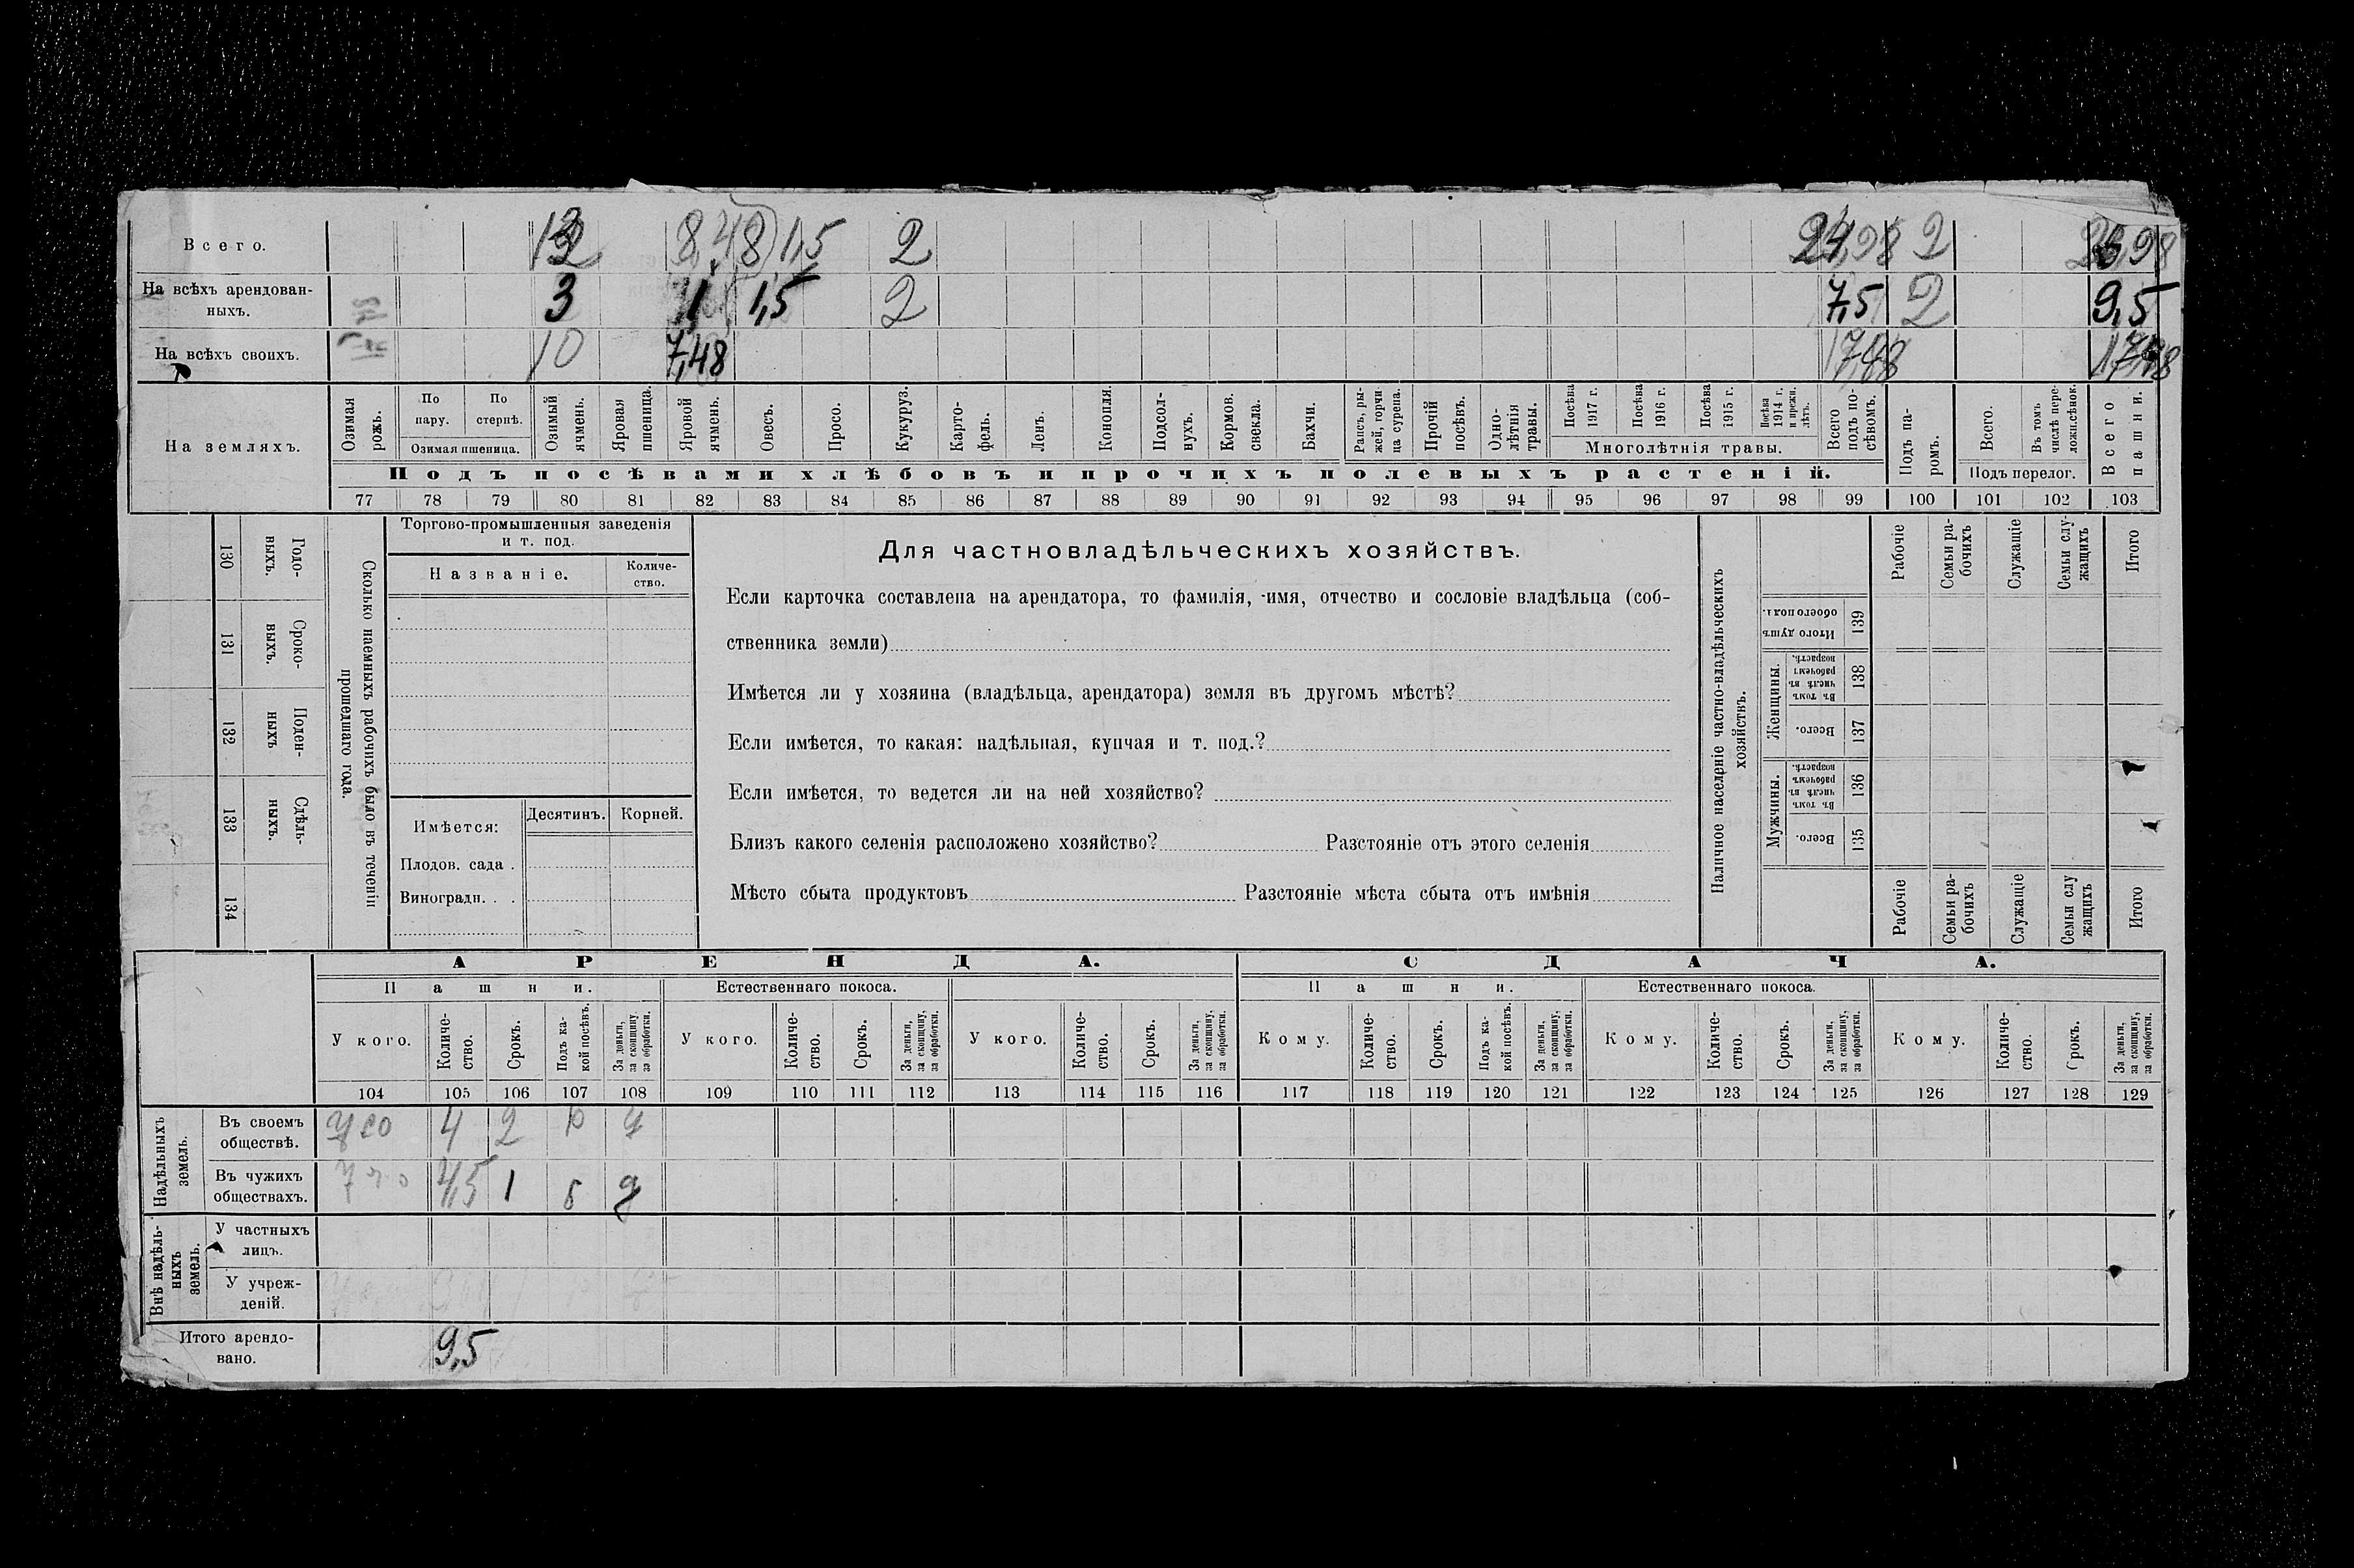 Всего. 13 8,48 1,5 2 24,98 2 26,98
На всѣхъ арендован-
ныхъ. 3 1 1,5 2 7,5 2 9,5
На всѣхъ своихъ. 10 7,48 17,48 17,48
На земляхъ.
Озимая рожь.
По пару.
По стернѣ.
Озимая пшеница.
Озимый ячмень.
Яровая пшеница.
Яровой ячмень.
Овесъ.
Просо.
Кукуруз.
Карто-
фель.
Ленъ.
Конопля.
Подсол-
нухъ.
Кормов.
свекла.
Бахчи.
Рапсъ, ры-
жей, горчи
ца сурепа.
Прочій
посѣвъ.
Одно-
лѣтнія
травы.
Посѣва
1917 г.
Посѣва
1916 г.
Посѣва
1915 г.
Посѣва
1914 г.
и прежн.
лѣтъ.
Многолѣтнія травы.
Всего
подъ по-
сѣвомъ.
Подъ па-
ромъ.
Всего.
Въ томъ
числѣ пере-
ложн.сѣнок.
Подъ перелог.
Всего
пашни.
Подъ посѣвами хлѣбовъ и прочихъ полевыхъ растеній.
77 78 79 80 81 82 83 84 85 86 87 88 89 90 91 92 93 94 95 96 97 98 99 100 101 102 103
130 Годо-
выхъ.
131 Сроко-
выхъ.
132 Поден-
ныхъ
133 Сдѣль-
ныхъ.
134
Сколько наемныхъ рабочихъ было въ теченіи
прошедшаго года.
Торгово-промышленныя заведенія
и т. под.
Названіе.
Количе-
ство.
Имѣется:
Десятинъ. Корней.
Плодов. сада .
Виноградн. . .
Для частновладѣльческихъ хозяйствъ.
Если карточка составлена на арендатора, то фамилія, имя, отчество и сословіе владѣльца (соб-
ственника земли)
Имѣется ли у хозяина (владѣльца, арендатора) земля въ другомъ мѣстѣ?
Если имѣется, то какая: надѣльная, купчая и т. под.?
Если имѣется, то ведется ли на ней хозяйство?
Близъ какого селенія расположено хозяйство? Разстояніе отъ этого селенія
Мѣсто сбыта продуктовъ Разстояніе мѣста сбыта отъ имѣнія
Наличное населеніе частно-владѣльческихъ
хозяйствъ.
Итого душъ
обоего пола. 139
Женщины.
Въ томъ
числѣ въ
рабочемъ
возрастѣ. 138
Всего. 137
Мужчины.
Въ томъ
числѣ въ
рабочемъ
возрастѣ. 136
Всего. 135
Рабочіе
Семьи ра-
бочихъ
Служащіе
Семьи слу-
жащихъ
Итого
Рабочіе
Семьи ра-
бочихъ
Служащіе
Семьи слу
жащихъ
Итого
АРЕНДА. СДАЧА.
Пашни. Естественнаго покоса. Пашни. Естественнаго покоса.
У кого.
Количе-
ство.
Срокъ.
Подъ ка-
кой посѣвъ.
За деньги,
за скопщину,
за обработки.
У кого.
Количе-
ство.
Срокъ.
За деньги,
за скопщину,
за обработки.
У кого.
Количе-
ство.
Срокъ.
За деньги,
за скопщину,
за обработки.
Кому.
Количе-
ство.
Срокъ.
Подъ ка-
кой посѣвъ.
За деньги,
за скопщину,
за обработки.
Кому.
Количе-
ство.
Срокъ.
За деньги,
за скопщину,
за обработки.
Кому.
Количе-
ство.
Срокъ.
За деньги,
за скопщину,
за обработки.
104 105 106 107 108 109 110 111 112 113 114 115 116 117 118 119 120 121 122 123 124 125 126 127 128 129
Надѣльныхъ
земель.
Въ своемъ
обществѣ. 4 2
Въ чужихъ
обществахъ. 4,5 1
Внѣ надѣль-
ныхъ
земель.
У частныхъ
лицъ.
У учреж-
деній.
Итого арендо-
вано. 9,5